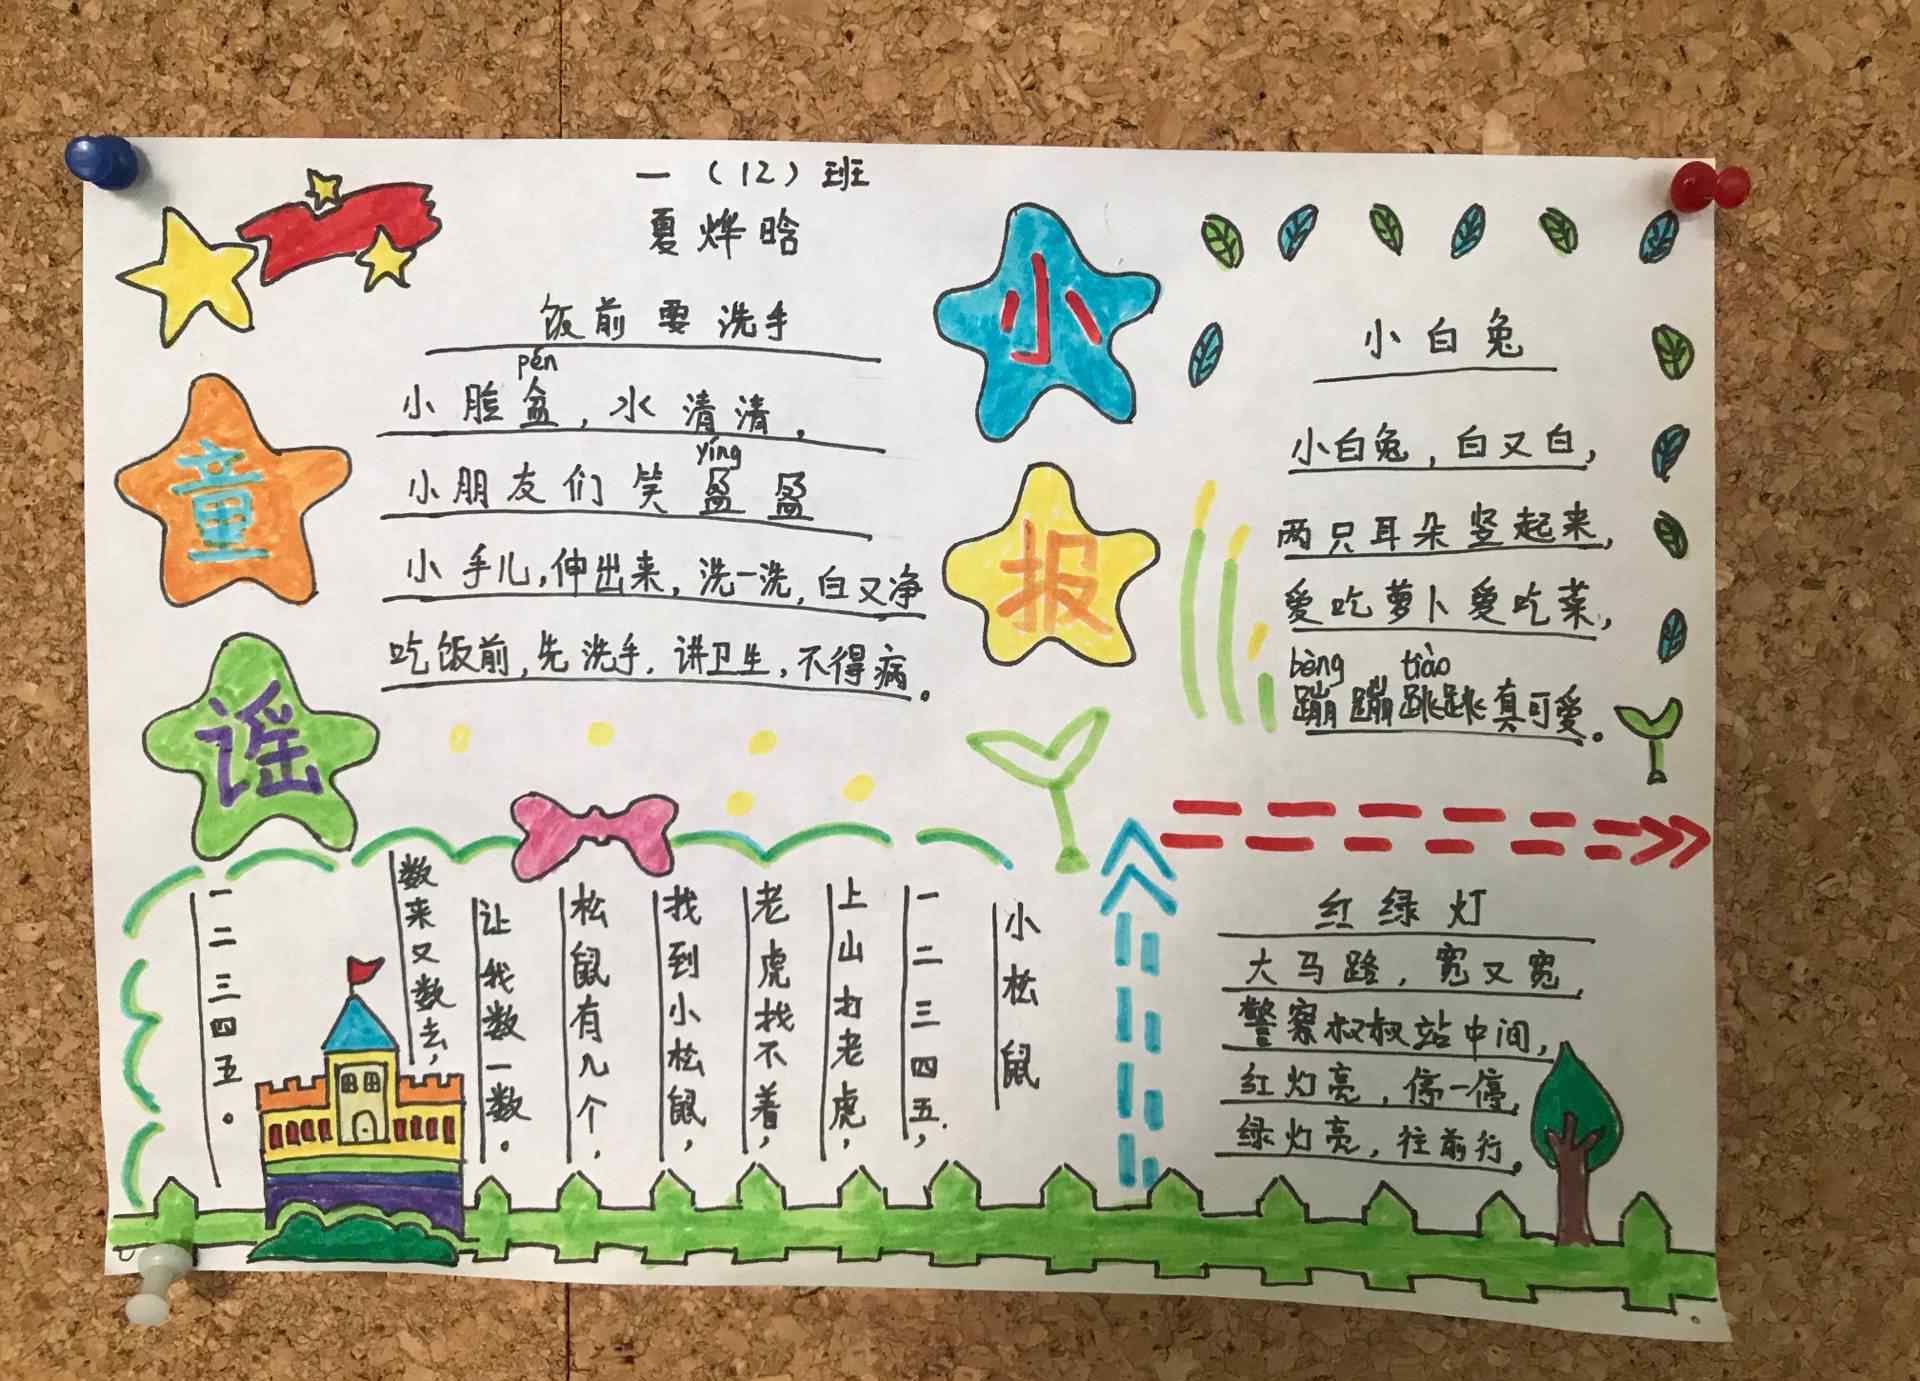 一（12）班
夏烨晗
童谣
小报
饭前要洗手
pén
小脸盆，水清清，
yíng
小朋友们笑盈盈
小手儿，伸出来，洗一洗，白又净
吃饭前，先洗手，讲卫生，不得病。
小白兔
小白兔，白又白，
两只耳朵竖起来，
爱吃萝卜爱吃菜，
bèng tiào
蹦蹦跳跳真可爱。
小松鼠
一二三四五，
上山打老虎，
老虎找不着，
找到小松鼠，
松鼠有几个，
让我数一数。
数来又数去，
一二三四五。
红绿灯
大马路，宽又宽，
警察叔叔站中间，
红灯亮，停一停，
绿灯亮，往前行。